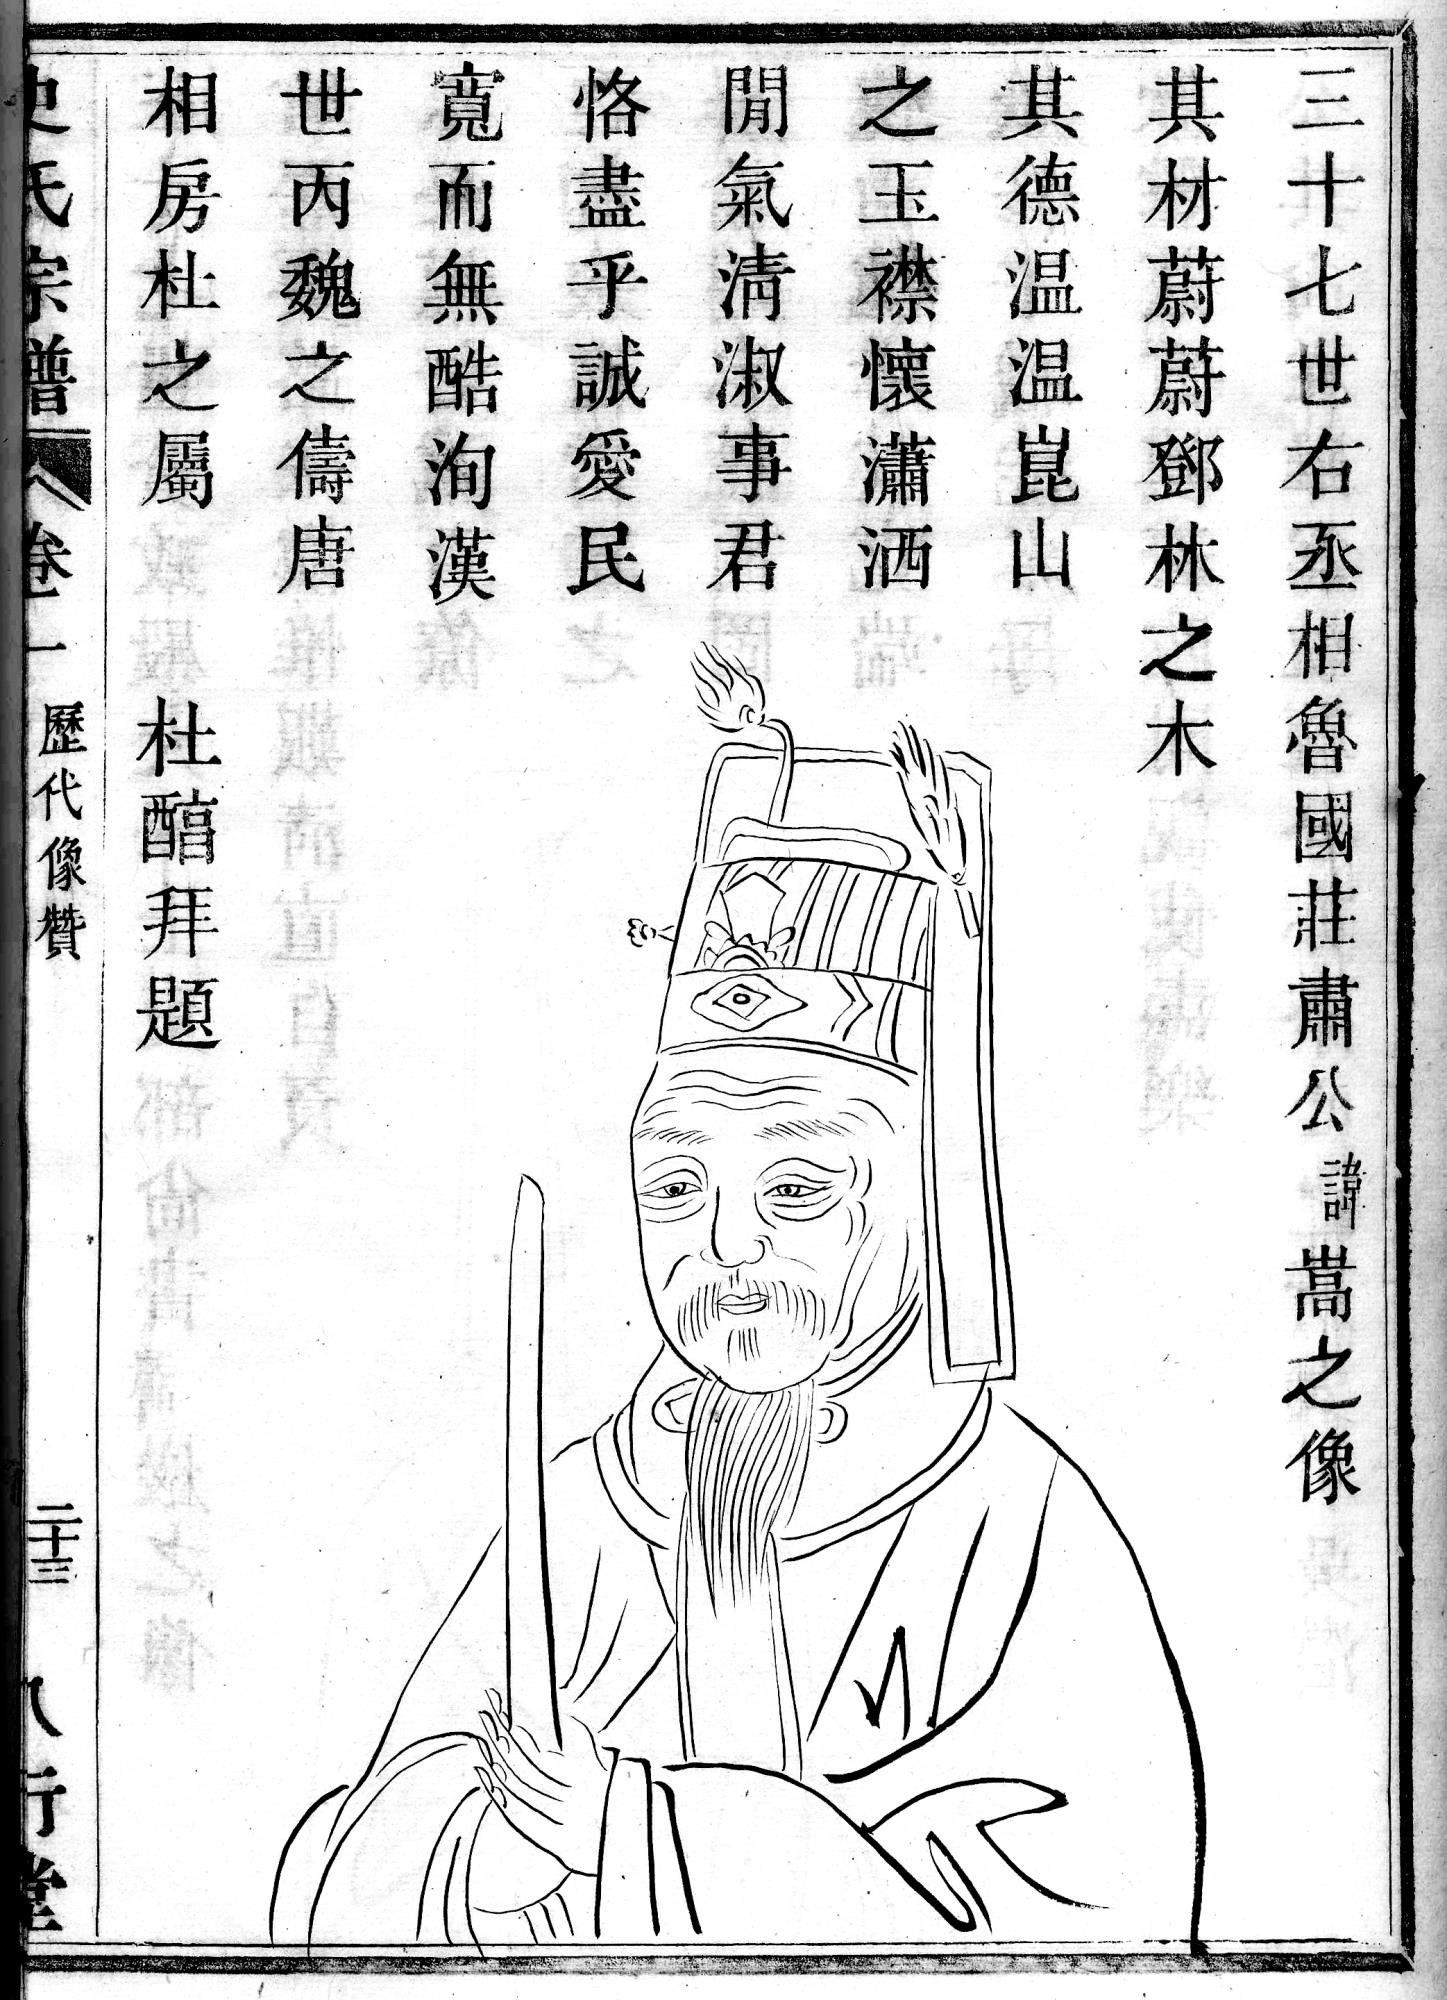 三十七世右丞相魯國莊肅公諱嵩之像
其材蔚蔚鄧林之木
其德温温崑山
之玉襟懷瀟洒
閒氣清淑事君
恪盡乎誠愛民
寬而無酷洵漢
世丙魏之儔唐
相房杜之屬
杜醕拜題
史氏宗譜
卷一
歷代像贊
二十三
八行堂